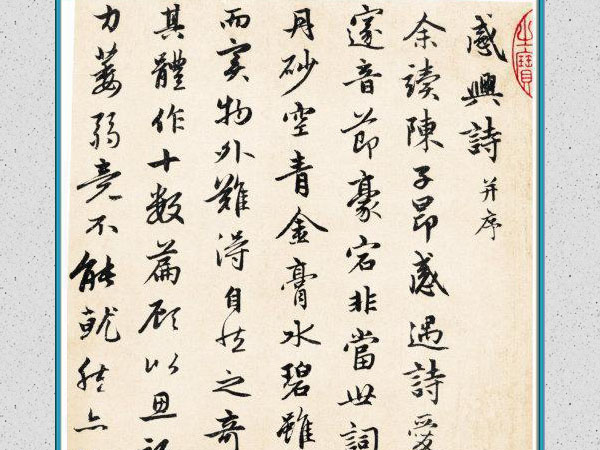 感興詩 并序
余讀陳子昂感遇詩愛
邃音節豪宕非當世詞
丹砂空青金膏水碧雖
而實物外難得自然之奇
其體作十數篇顧以思
力萎弱竟不能就然亦